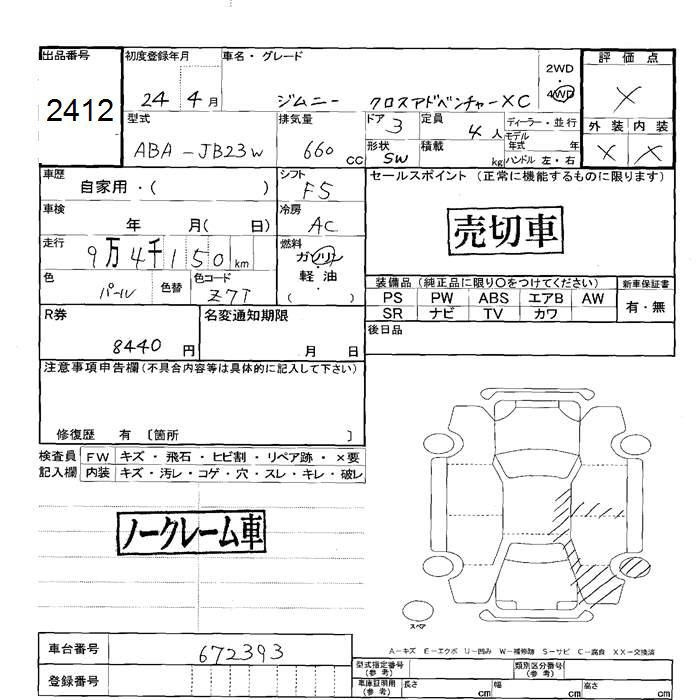 出品番号
2412
初度登録年月
24 4月
車名・グレード
ジムニー クロスアドベンチャーXC
2WD
・
4WD
評価点
X
外装 内装
X X
型式
ABA-JB23W
排気量
660 CC
ドア 3
形状 SW
定員
4人
積載
kg
ディーラー・並行
モデル
年式 年
ハンドル 左・右
車歴
自家用・( )
シフト
F5
セールスポイント (正常に機能するものに限ります)
売切車
車検
年 月( 日)
冷房
AC
走行
9万4千150km
燃料
ガソリン
・
軽油
( )
色
パール
色替
色コード
Z7T
装備品 (純正品に限り○をつけてください)
新車保証書
PS PW ABS エアB AW
SR ナビ TV カワ
有・無
R券
8440円
名変通知期限
月 日
後日品
注意事項申告欄 (不具合内容等は具体的に記入して下さい)
修復歴 有 〔箇所 〕
検査員
記入欄
FW キズ・飛石・ヒビ割・リペア跡・×要
内装 キズ・汚レ・コゲ・穴・スレ・キレ・破レ
ノークレーム車
スペア
A-キズ E-エクボ U-凹み W-補修跡 S-サビ C-腐食 XX-交換済
車台番号
672393
登録番号
型式指定番号
(参考)
類別区分番号
(参考)
車庫証明用
(参考)
長さ cm
幅 cm
高さ cm